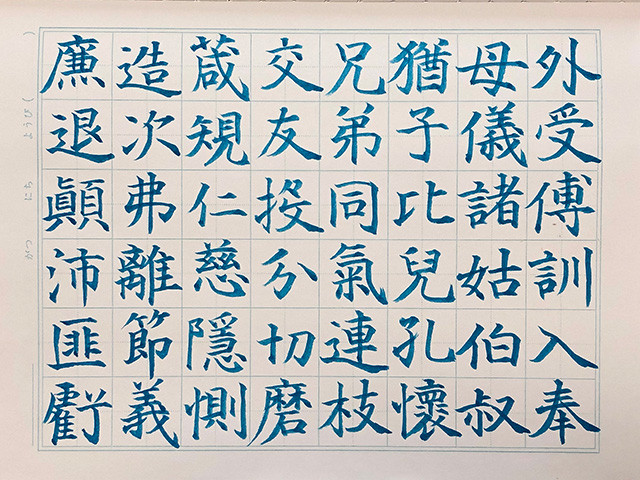 外受傅訓入奉
母儀諸姑伯叔
猶子比兒孔懷
兄弟同氣連枝
交友投分切磨
葴䂓仁慈隱惻
造次弗離節義
廉退顚沛匪虧
がつ にち ようび ( )